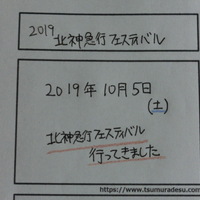 2019
北神急行フェスティバル
2019年10月5日
(土)
北神急行フェスティバル
行ってきました
https://www.tsumuradesu.com/